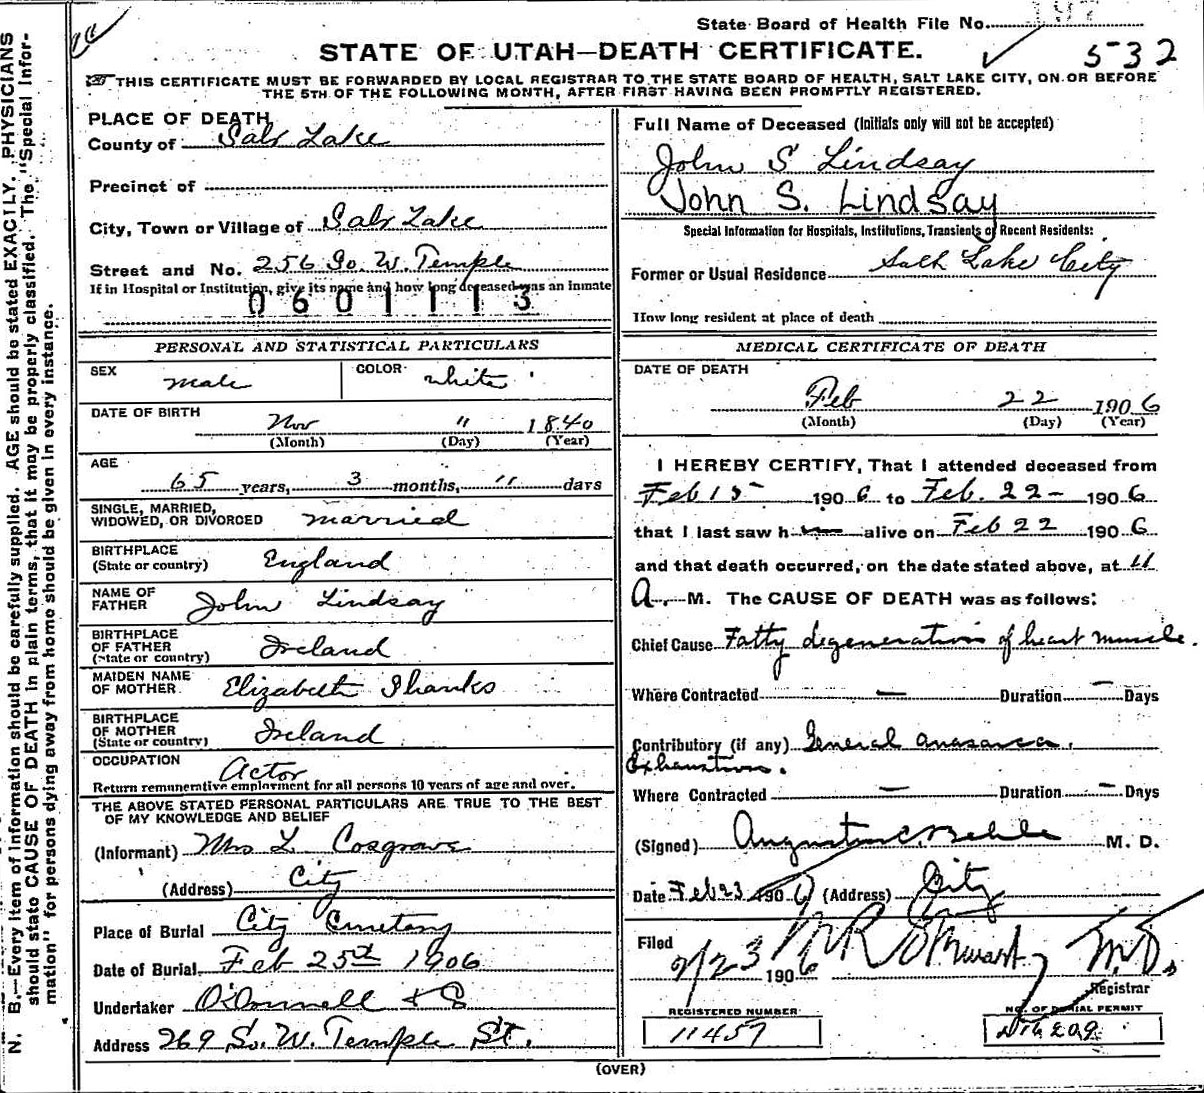 State Board of Health File No. 197
STATE OF UTAH—DEATH CERTIFICATE.
532
THIS CERTIFICATE MUST BE FORWARDED BY LOCAL REGISTRAR TO THE STATE BOARD OF HEALTH, SALT LAKE CITY, ON OR BEFORE
THE 5TH OF THE FOLLOWING MONTH, AFTER FIRST HAVING BEEN PROMPTLY REGISTERED.
N. B.—Every item of information should be carefully supplied. AGE should be stated EXACTLY. PHYSICIANS
should state CAUSE OF DEATH in plain terms, that it may be properly classified. The "Special Infor-
mation" for persons dying away from home should be given in every instance.
PLACE OF DEATH
County of Salt Lake
Precinct of
City, Town or Village of Salt Lake
Street and No. 256 So. W. Temple
If in Hospital or Institution, give its name and how long deceased was an inmate
0601113
PERSONAL AND STATISTICAL PARTICULARS
SEX male COLOR white
DATE OF BIRTH
Nov 11 1840
(Month) (Day) (Year)
AGE
65 years, 3 months, 11 days
SINGLE, MARRIED,
WIDOWED, OR DIVORCED married
BIRTHPLACE
(State or country) England
NAME OF
FATHER John Lindsay
BIRTHPLACE
OF FATHER
(State or country) Ireland
MAIDEN NAME
OF MOTHER Elizabeth Shanks
BIRTHPLACE
OF MOTHER
(State or country) Ireland
OCCUPATION Actor
Return remunerative employment for all persons 10 years of age and over.
THE ABOVE STATED PERSONAL PARTICULARS ARE TRUE TO THE BEST
OF MY KNOWLEDGE AND BELIEF
(Informant) Mrs L Cosgrave
(Address) City
Place of Burial City Cemetery
Date of Burial Feb 25th 1906
Undertaker O'Donnell & S
Address 269 So. W. Temple St.
Full Name of Deceased (Initials only will not be accepted)
John S Lindsay
John S. Lindsay
Special Information for Hospitals, Institutions, Transients or Recent Residents:
Former or Usual Residence Salt Lake City
How long resident at place of death
MEDICAL CERTIFICATE OF DEATH
DATE OF DEATH
Feb 22 1906
(Month) (Day) (Year)
I HEREBY CERTIFY, That I attended deceased from
Feb 15 1906 to Feb. 22 - 1906
that I last saw h alive on Feb 22 1906
and that death occurred, on the date stated above, at 11
A. M. The CAUSE OF DEATH was as follows:
Chief Cause Fatty degeneration of heart muscle.
Where Contracted — Duration — Days
Contributory (if any) General anasarca.
Exhaustion.
Where Contracted — Duration — Days
(Signed) Augustus C. Behle M. D.
Date Feb 23 1906 (Address) City
Filed 2/23 1906 M.D.
Registrar
REGISTERED NUMBER
11457
NO. OF BURIAL PERMIT
(OVER)